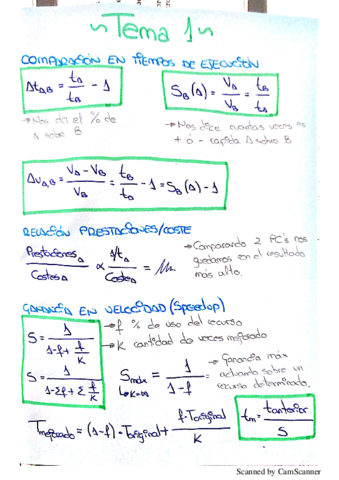 ~ Tema 1 ~
COMPARACIÓN EN TIEMPOS DE EJECUCIÓN
Δt_{A,B} = t_A / t_B - 1
→ Nos da el % de
A sobre B
S_B(A) = V_A / V_B = t_B / t_A
→ Nos dice cuantas veces es
+ ó - rapida A sobre B
ΔV_{A,B} = (V_A - V_B) / V_B = t_B / t_A - 1 = S_B(A) - 1
RELACIÓN PRESTACIONES/COSTE
Prestaciones_A / Costes_A ∝ (1/t_A) / Coste_A =
→ Comparando 2 PC's nos
quedamos en el resultado
más alto.
GANANCIA EN VELOCIDAD (Speedop)
S = 1 / (1-f + f/K)
→ f % de uso del recurso
→ K cantidad de veces mejorado
S = 1 / (1-Σf + Σ f/K)
S_{máx} = 1 / (1-f)
↳ K=∞
→ Ganancia máx
actuando sobre un
recurso determinado.
T_{mejorado} = (1-f) · T_{original} + f · T_{original} / K
t_m = t_{anterior} / S
Scanned by CamScanner